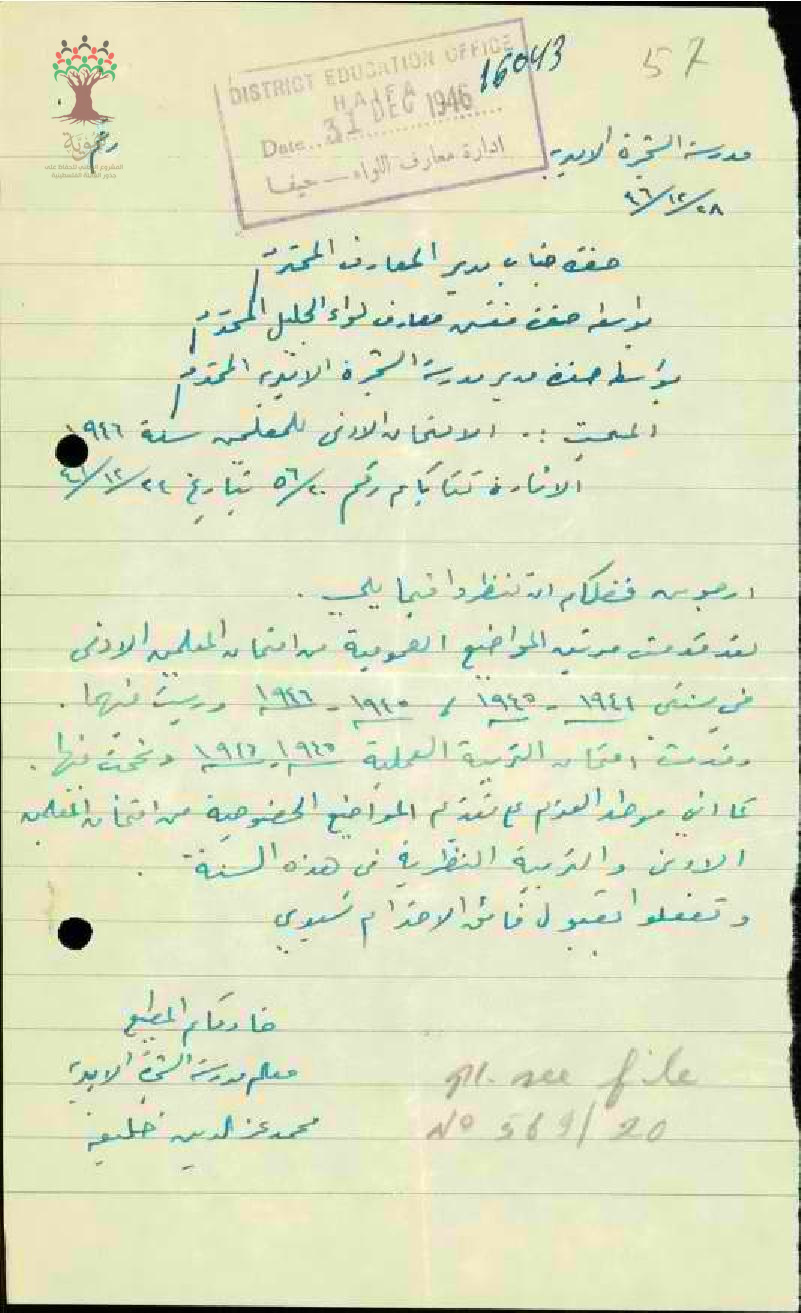 57
16043
DISTRICT EDUCATION OFFICE
HAIFA
Date 31 DEC 1946
ادارة معارف اللواء — حيفا
خمونة
المشروع الوطني للحفاظ على
جذور العائلة الفلسطينية
رقم
مدرسة الشجرة الاميرية
٢٨/١٢/٤٦
حضرة جناب مدير المعارف المحترم
بواسطة حضرة مفتش معارف لواء الجليل المحترم
بواسطة حضرة مدير مدرسة الشجرة الاميرية المحترم
المبحث :. الامتحان الادنى للمعلمين سنة ١٩٤٦
الاشارة كتابكم رقم ٥٦/٢٠ بتاريخ ٢٤/١٢/٤٦
ارجو من فضلكم ان تنظروا فيما يلي .
لقد قدمت مرتين المواضيع العمومية من امتحان المعلمين الادنى
في سنتي ١٩٤٤ - ١٩٤٥ و ١٩٤٥ - ١٩٤٦ ورسبت فيهما .
وقدمت امتحان التربية العملية ١٩٤٥ - ١٩٤٦ ونجحت فيها .
كما اني موطد العزم على تقديم المواضيع الخصوصية من امتحان المعلمين
الادنى والتربية النظرية في هذه السنة .
وتفضلوا بقبول فائق الاحترام سيدي
خادمكم المطيع
معلم مدرسة الشجرة الاميرية
محمد عز الدين خليفة
pl. see file
No 569/20